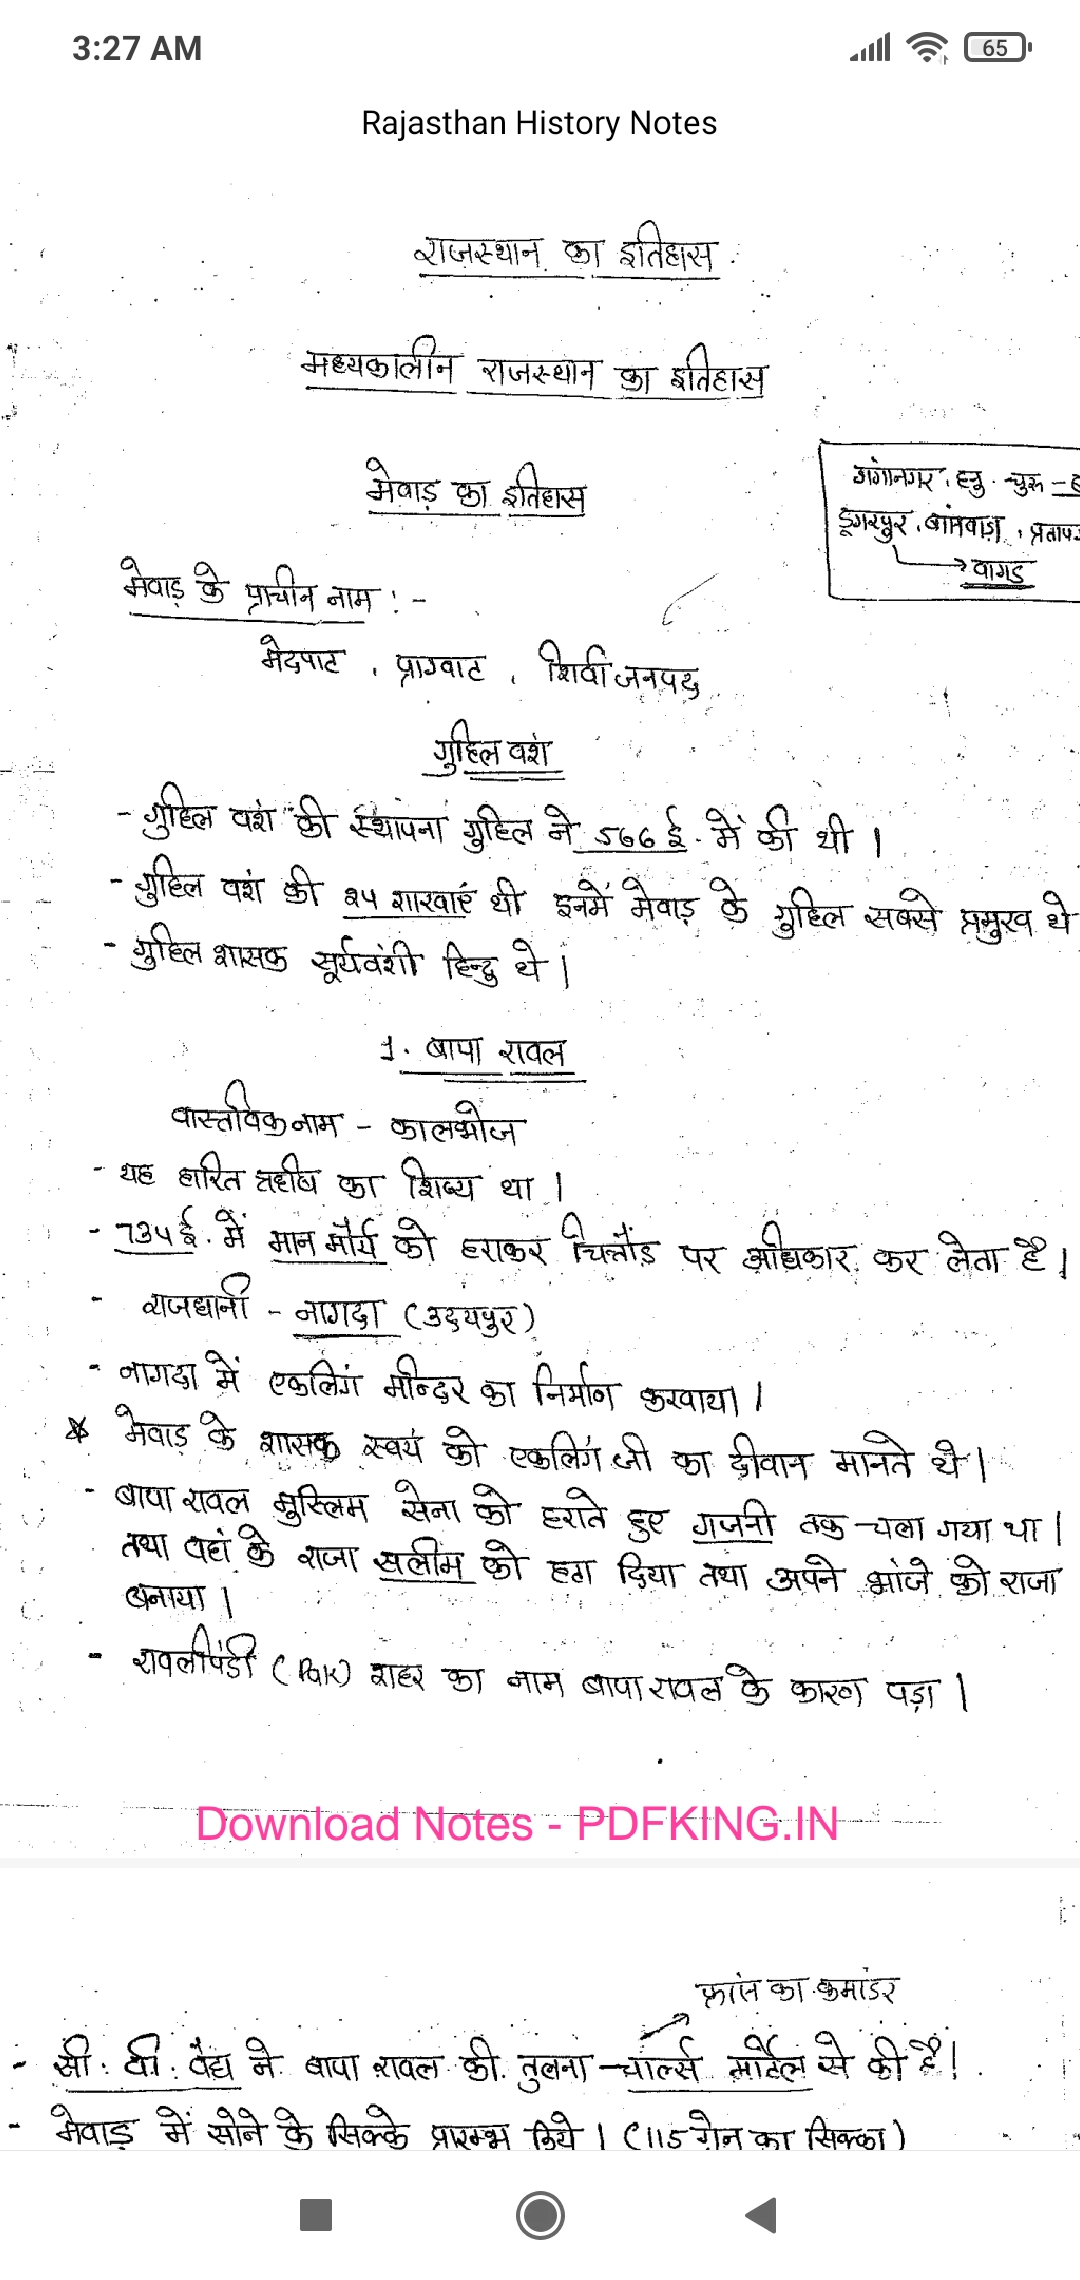 3:27 AM
65
Rajasthan History Notes
राजस्थान का इतिहास
मध्यकालीन राजस्थान का इतिहास
मेवाड़ का इतिहास
गंगानगर, हनु. चुरू -
डूंगरपुर, बांसवाड़ा, प्रताप
→ वागड
मेवाड़ के प्राचीन नाम :-
मेदपाट , प्राग्वाट , शिवी जनपद
गुहिल वंश
- गुहिल वंश की स्थापना गुहिल ने 566 ई. में की थी ।
- गुहिल वंश की २५ शाखाएं थी इनमें मेवाड़ के गुहिल सबसे प्रमुख थे
- गुहिल शासक सूर्यवंशी हिन्दु थे ।
1. बापा रावल
वास्तविक नाम - कालभोज
- यह हारित ऋषि का शिष्य था ।
- 734 ई. में मान मौर्य को हराकर चित्तौड़ पर अधिकार कर लेता है ।
- राजधानी - नागदा (उदयपुर)
- नागदा में एकलिंग मन्दिर का निर्माण करवाया ।
* मेवाड़ के शासक स्वयं को एकलिंग जी का दीवान मानते थे ।
- बापा रावल मुस्लिम सेना को हराते हुए गजनी तक चला गया था ।
तथा वहां के राजा सलीम को हरा दिया तथा अपने भांजे को राजा
बनाया ।
- रावलपिंडी (Pak) शहर का नाम बापा रावल के कारण पड़ा ।
Download Notes - PDFKING.IN
फ्रांस का कमांडर
- सी. वी. वैद्य ने बापा रावल की तुलना चार्ल्स मार्टेल से की है।
- मेवाड़ में सोने के सिक्के प्रारम्भ किये । (115 ग्रेन का सिक्का)